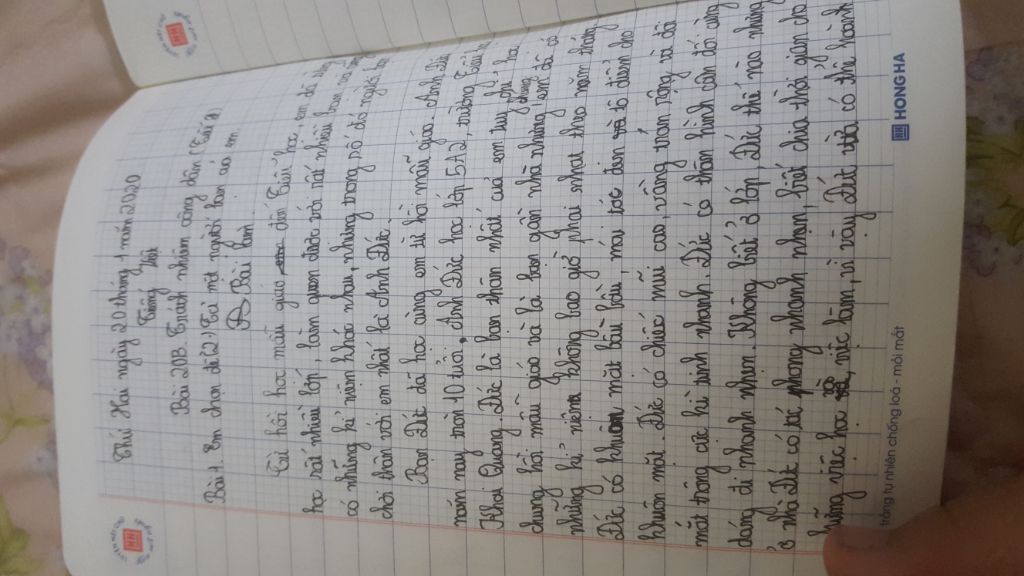 Thứ Hai ngày 20 tháng 1 năm 2020
Tiếng Việt
Bài 20B. Trách nhiệm công dân (Tiết 2)
Bài 1. Em chọn đề (2) Tả một người bạn của em.
Bài làm.
Từ hồi học mẫu giáo đến Tiểu học, em đã từng
học rất nhiều lớp, làm quen được với rất nhiều bạn và từng
có những kỉ niệm khác nhau, nhưng trong số đó người bạn
chơi thân với em nhất là Anh Đức.
Bạn Đức đã học cùng em từ hồi mẫu giáo. Anh Đức
năm nay tròn 10 tuổi. Anh Đức học lớp 5A2, trường Tiểu học
Khai Quang. Đức là bạn thân nhất của em tuy chỉ học
chung hồi mẫu giáo và là bạn gần nhà nhưng chúng em đã có
những kỉ niệm không bao giờ phai nhạt theo năm tháng.
Đức có khuôn mặt bầu bĩnh, mái tóc đen tô điểm cho
khuôn mặt. Đức có chiếc mũi cao, vầng trán rộng và đôi
mắt trông cực kì tinh nhanh. Đức có thân hình cân đối cùng
dáng đi nhanh nhẹn. Không biết ở lớp, Đức thế nào nhưng
ở nhà Đức có tác phong nhanh nhẹn, biết chia thời gian cho
những việc học, việc làm, vì vậy Đức có thể hoàn
trắng tự nhiên chống loá - mỏi mắt
HONG HA